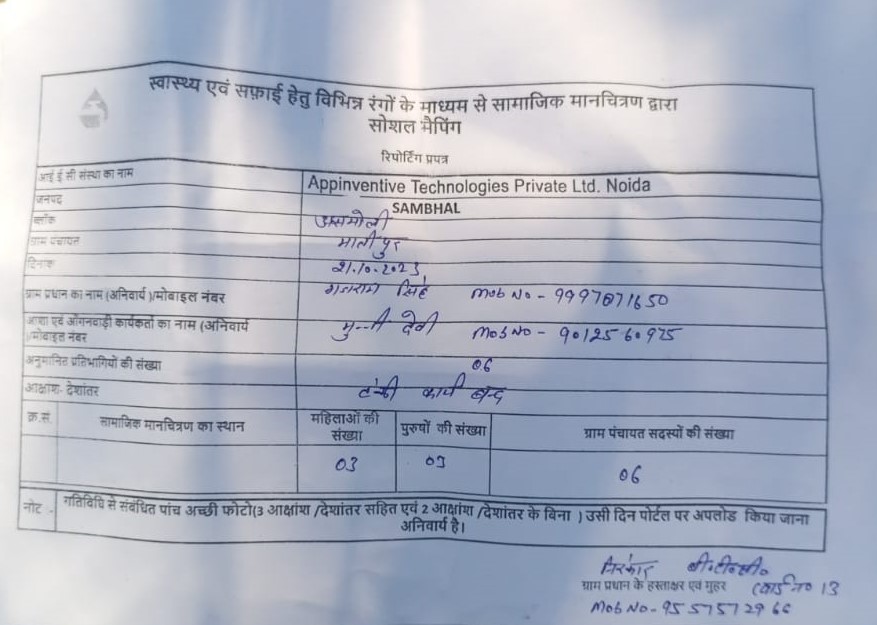 स्वास्थ्य एवं सफ़ाई हेतु विभिन्न रंगों के माध्यम से सामाजिक मानचित्रण द्वारा
सोशल मैपिंग
रिपोर्टिंग प्रपत्र
आई ई सी संस्था का नाम Appinventive Technologies Private Ltd. Noida
जनपद SAMBHAL
ब्लॉक असमोली
ग्राम पंचायत मालीपुर
दिनांक 21.10.2023
ग्राम प्रधान का नाम (अनिवार्य )/मोबाइल नंबर सिंह Mob No - 9997871650
आशा एवं आँगनवाड़ी कार्यकर्ता का नाम (अनिवार्य मुन्नी देवी Mob No - 9012560975
)/मोबाइल नंबर
अनुमानित प्रतिभागियों की संख्या 06
आक्षांश- देशांतर टंकी कार्य बन्द
क्र.सं. सामाजिक मानचित्रण का स्थान महिलाओं की संख्या पुरुषों की संख्या ग्राम पंचायत सदस्यों की संख्या
03 03 06
नोट - गतिविधि से संबंधित पांच अच्छी फोटो(3 आक्षांश /देशांतर सहित एवं 2 आक्षांश /देशांतर के बिना ) उसी दिन पोर्टल पर अपलोड किया जाना
अनिवार्य है।
ग्राम प्रधान के हस्ताक्षर एवं मुहर वार्ड no 13
Mob No- 9557572966